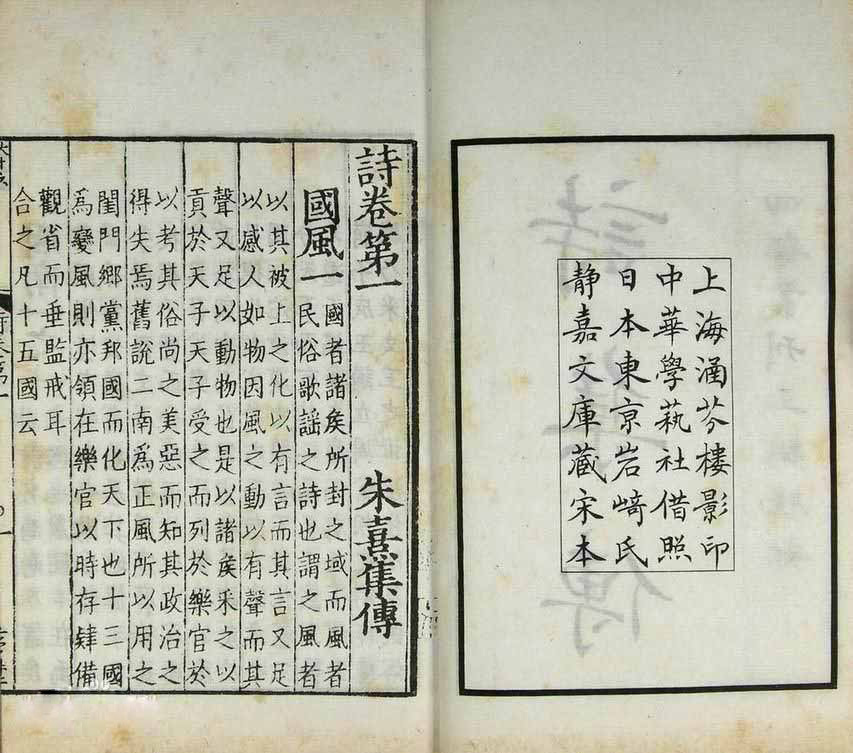 上海涵芬樓影印
中華學蓺社借照
日本東京岩﨑氏
静嘉文庫藏宋本
詩卷第一 朱熹集傳
國風一
國者諸矦所封之域而風者
民俗歌謡之詩也謂之風者
以其被上之化以有言而其言又足
以感人如物因風之動以有聲而其
聲又足以動物也是以諸矦采之以
貢於天子天子受之而列於樂官於
以考其俗尚之美惡而知其政治之
得失焉舊說二南爲正風所以用之
閨門鄉黨邦國而化天下也十三國
爲變風則亦領在樂官以時存肄備
觀省而垂監戒耳
合之凡十五國云